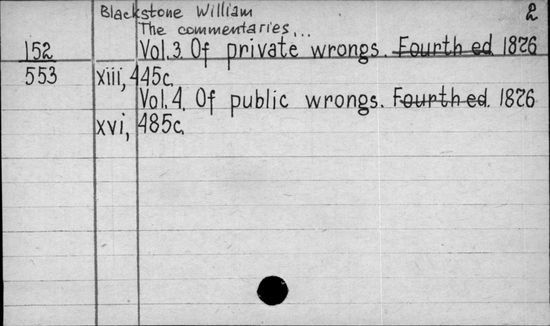 Blackstone William 2
The commentaries...
152 Vol. 3. Of private wrongs. Fourth ed. 1876
553 xiii, 445c.
Vol. 4. Of public wrongs. Fourth ed. 1876
xvi, 485c.